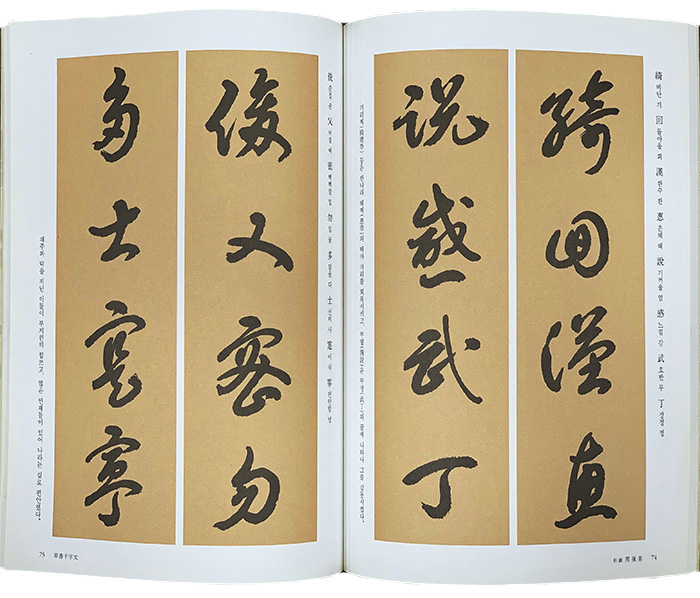 綺 비단 기 回 돌아올 회 漢 한수 한 惠 은혜 혜 說 기꺼울 열 感 느낄 감 武 호반 무 丁 장정 정
綺回漢惠
说感武丁
기리계(綺里季) 등은 한나라 혜제(惠帝)의 태자 자리를 회복시키고, 부열(傅說)은 무정(武丁)의 꿈에 나타나 그를 감동시켰다.
74
俊 준걸 준 乂 어질 예 密 빽빽할 밀 勿 말 물 多 많을 다 士 선비 사 寔 이 식 寧 편안할 녕
俊乂密勿
多士寔寧
재주와 덕을 지닌 이들이 부지런히 힘쓰고, 많은 인재들이 있어 나라는 실로 편안했다.
75 行書千字文